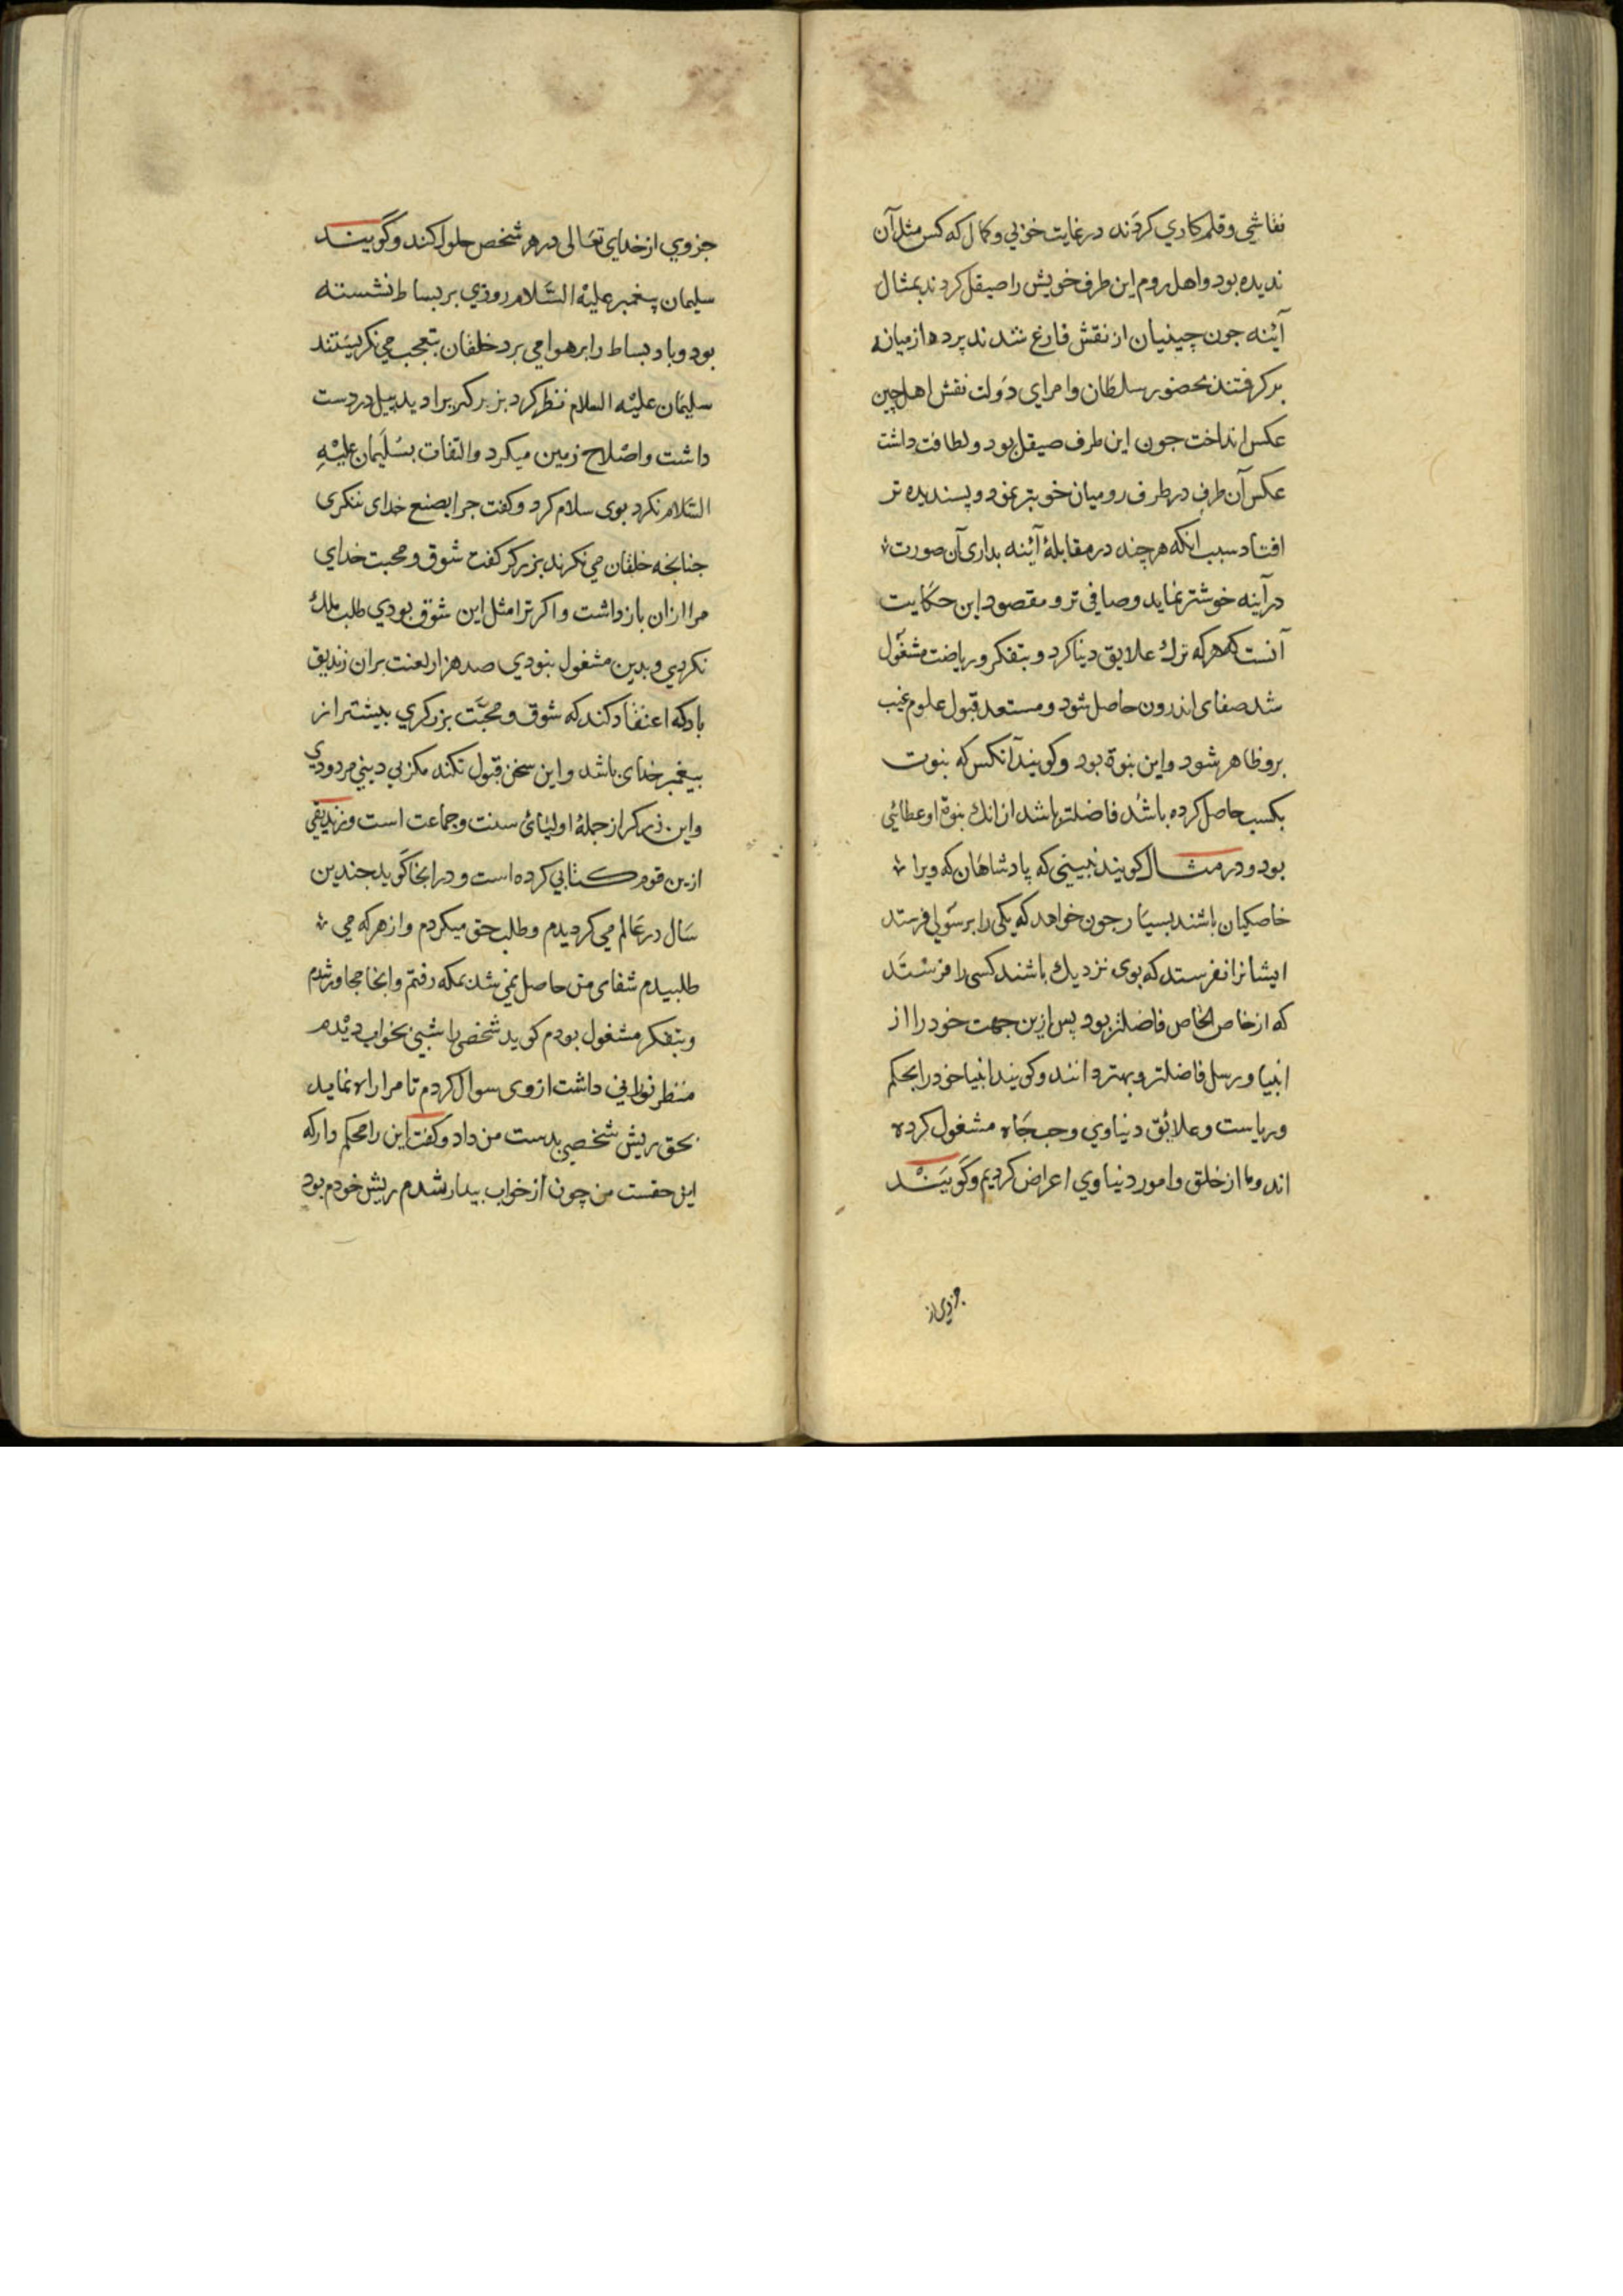 نقاشی وقلم کاري کردند در غایت خوبي وکمال که کس مثل آن
ندیده بود واهل روم این طرف خویش را صیقل کردند بمثال
آئنه جون چینیان از نقش فارغ شدند پرده از میانه
برکرفتند بحضور سلطان وامرای دولت نقش اهل چین
عکس انداخت جون این طرف صیقل بود ولطافت داشت
عکس آن طرف در طرف رومیان خوبتر نمود وپسندیده تر
افتاد سبب انکه هر چند در مقابلهٔ آئنه بداری آن صورت
در آینه خوشتر نماید وصافی تر ومقصود این حکایت
آنست که هر که ترك علایق دنیا کرد وبتفکر وریاضت مشغول
شد صفای اندرون حاصل شود ومستعد قبول علوم غیب
برو ظاهر شود واین نبوة بود وکویند آنکس که نبوت
بکسب حاصل کرده باشد فاضلتر باشد از انك نبوة او عطائی
بود ودر مثال کویند نبینی که پادشاهان که ویرا
خاصکیان باشند بسیار جون خواهد که یکی را برسولی فرستد
ایشانرا نفرستد که بوی نزدیك باشند کسی را فرستد
که از خاص الخاص فاضلتر بود پس ازین جهت خود را از
انبیا ورسل فاضلتر وبهتر دانند وکویند انبیا خود را بحکم
وریاست وعلائق دنیاوي وحب جاه مشغول کرده
اند وما از خلق وامور دنیاوي اعراض کردیم وکویند
جزوی از
جزوي از خدای تعالی در هر شخص حلول کند وکویند
سلیمان پیغمبر علیه السلام روزي بر بساط نشسته
بود وباد بساط را بر هوا مي برد خلقان بتعجب مي نکریستند
سلیمان علیه السلام نظر کرد برزکری را دید بیل در دست
داشت واصلاح زمین میکرد والتفات بسلیمان علیه
السلام نکرد بوی سلام کرد وکفت جرا بصنع خدای ننکری
جنانجه خلقان مي نکرند برزکر کفت شوق ومحبت خدای
مرا ازان بازداشت واکر ترا مثل این شوق بودي طلب ملك
نکردي وبدین مشغول نبودي صد هزار لعنت بران زندیق
باد که اعتقاد کند که شوق ومحبت برزکري بیشتر از
پیغمبر خدای باشد واین سخن قبول نکند مکر بي دیني مردودي
واین برزکر از جملهٔ اولیای سنت وجماعت است وزندیقي
ازین قوم کتابي کرده است ودر انجا کوید جندین
سال در عالم مي کردیدم وطلب حق میکردم واز هر که مي
طلبیدم شفای من حاصل نمي شد بمکه رفتم وانجا مجاور شدم
وبتفکر مشغول بودم کوید شخصی را شبي بخواب دیدم
منظر نوراني داشت از وی سوال کردم تا مرا راه نماید
بحق ریش شخصي بدست من داد وکفت این را محکم دار که
این حقست من چون از خواب بیدار شدم ریش خودم بود